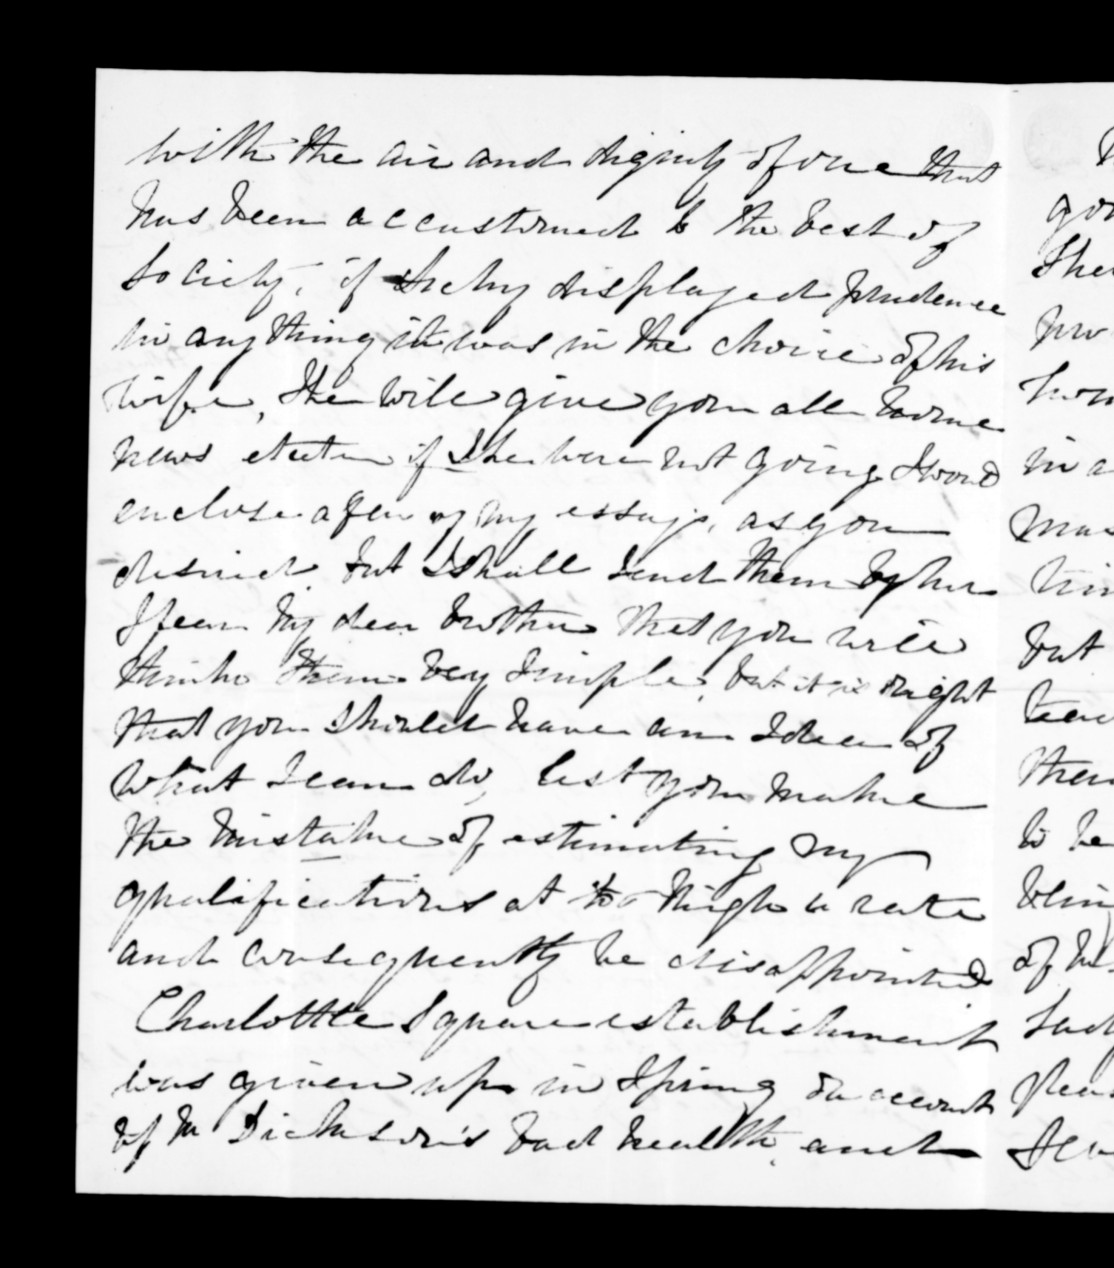 with the air and dignity of one that
has been accustomed to the best of
Society, if displayed prudence
in anything it was in the choice of his
wife, She will give you all home
news if She were not going I would
enclose a few of my essays, as you
desired, but I shall send them by her
I fear my dear brother that you will
think them very Simple, but it is right
that you Should have an Idea of
what I can do, lest you make
the mistake of estimating my
qualifications at to high a rate
and consequently be disappointed
Charlotte Square establishment
was given up in Spring on account
of Mr Dickson's bad health, and